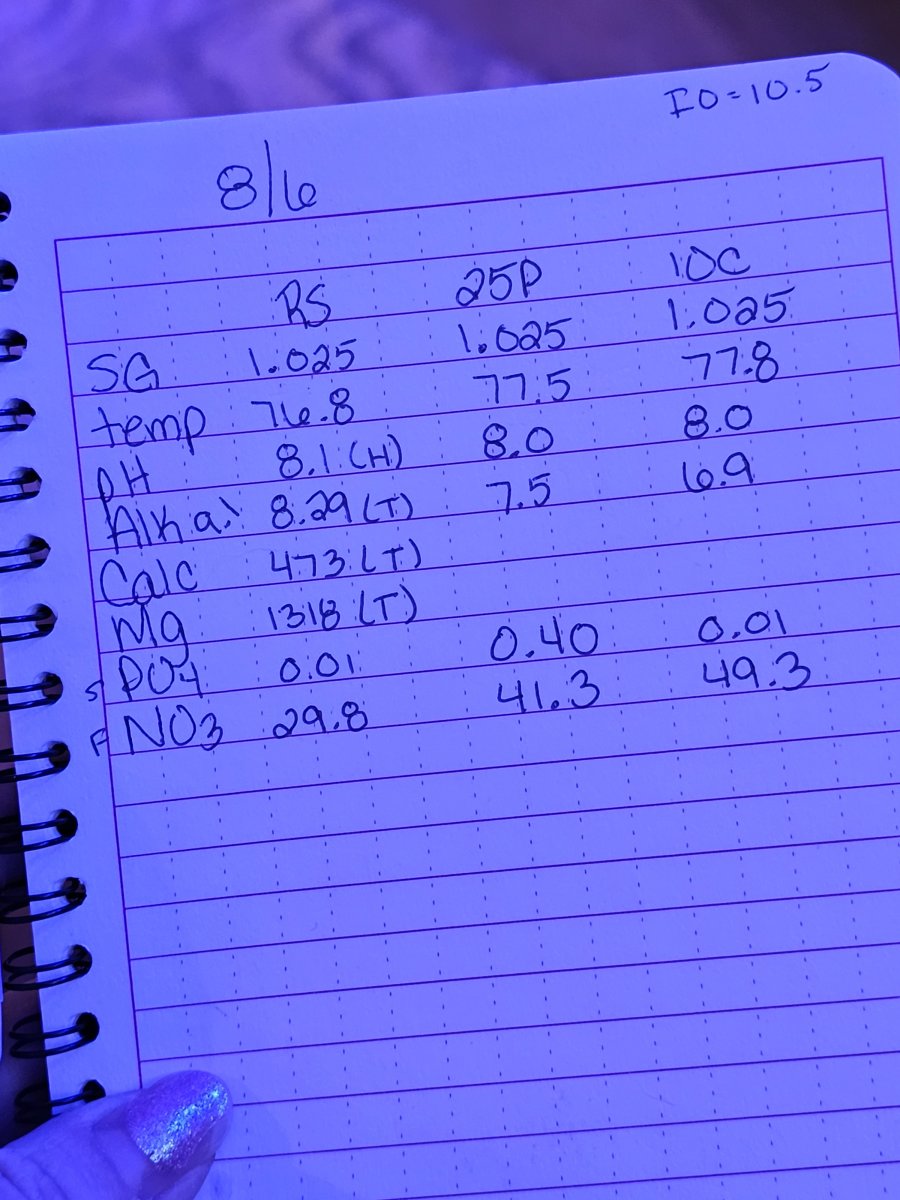 IO=10.5
8/6
RS 25P 10C
SG 1.025 1.025 1.025
temp 76.8 77.5 77.8
pH 8.1 (H) 8.0 8.0
Alka. 8.29 (T) 7.5 6.9
Calc 473 (T)
Mg 1318 (T)
S PO4 0.01 0.40 0.01
F NO3 29.8 41.3 49.3